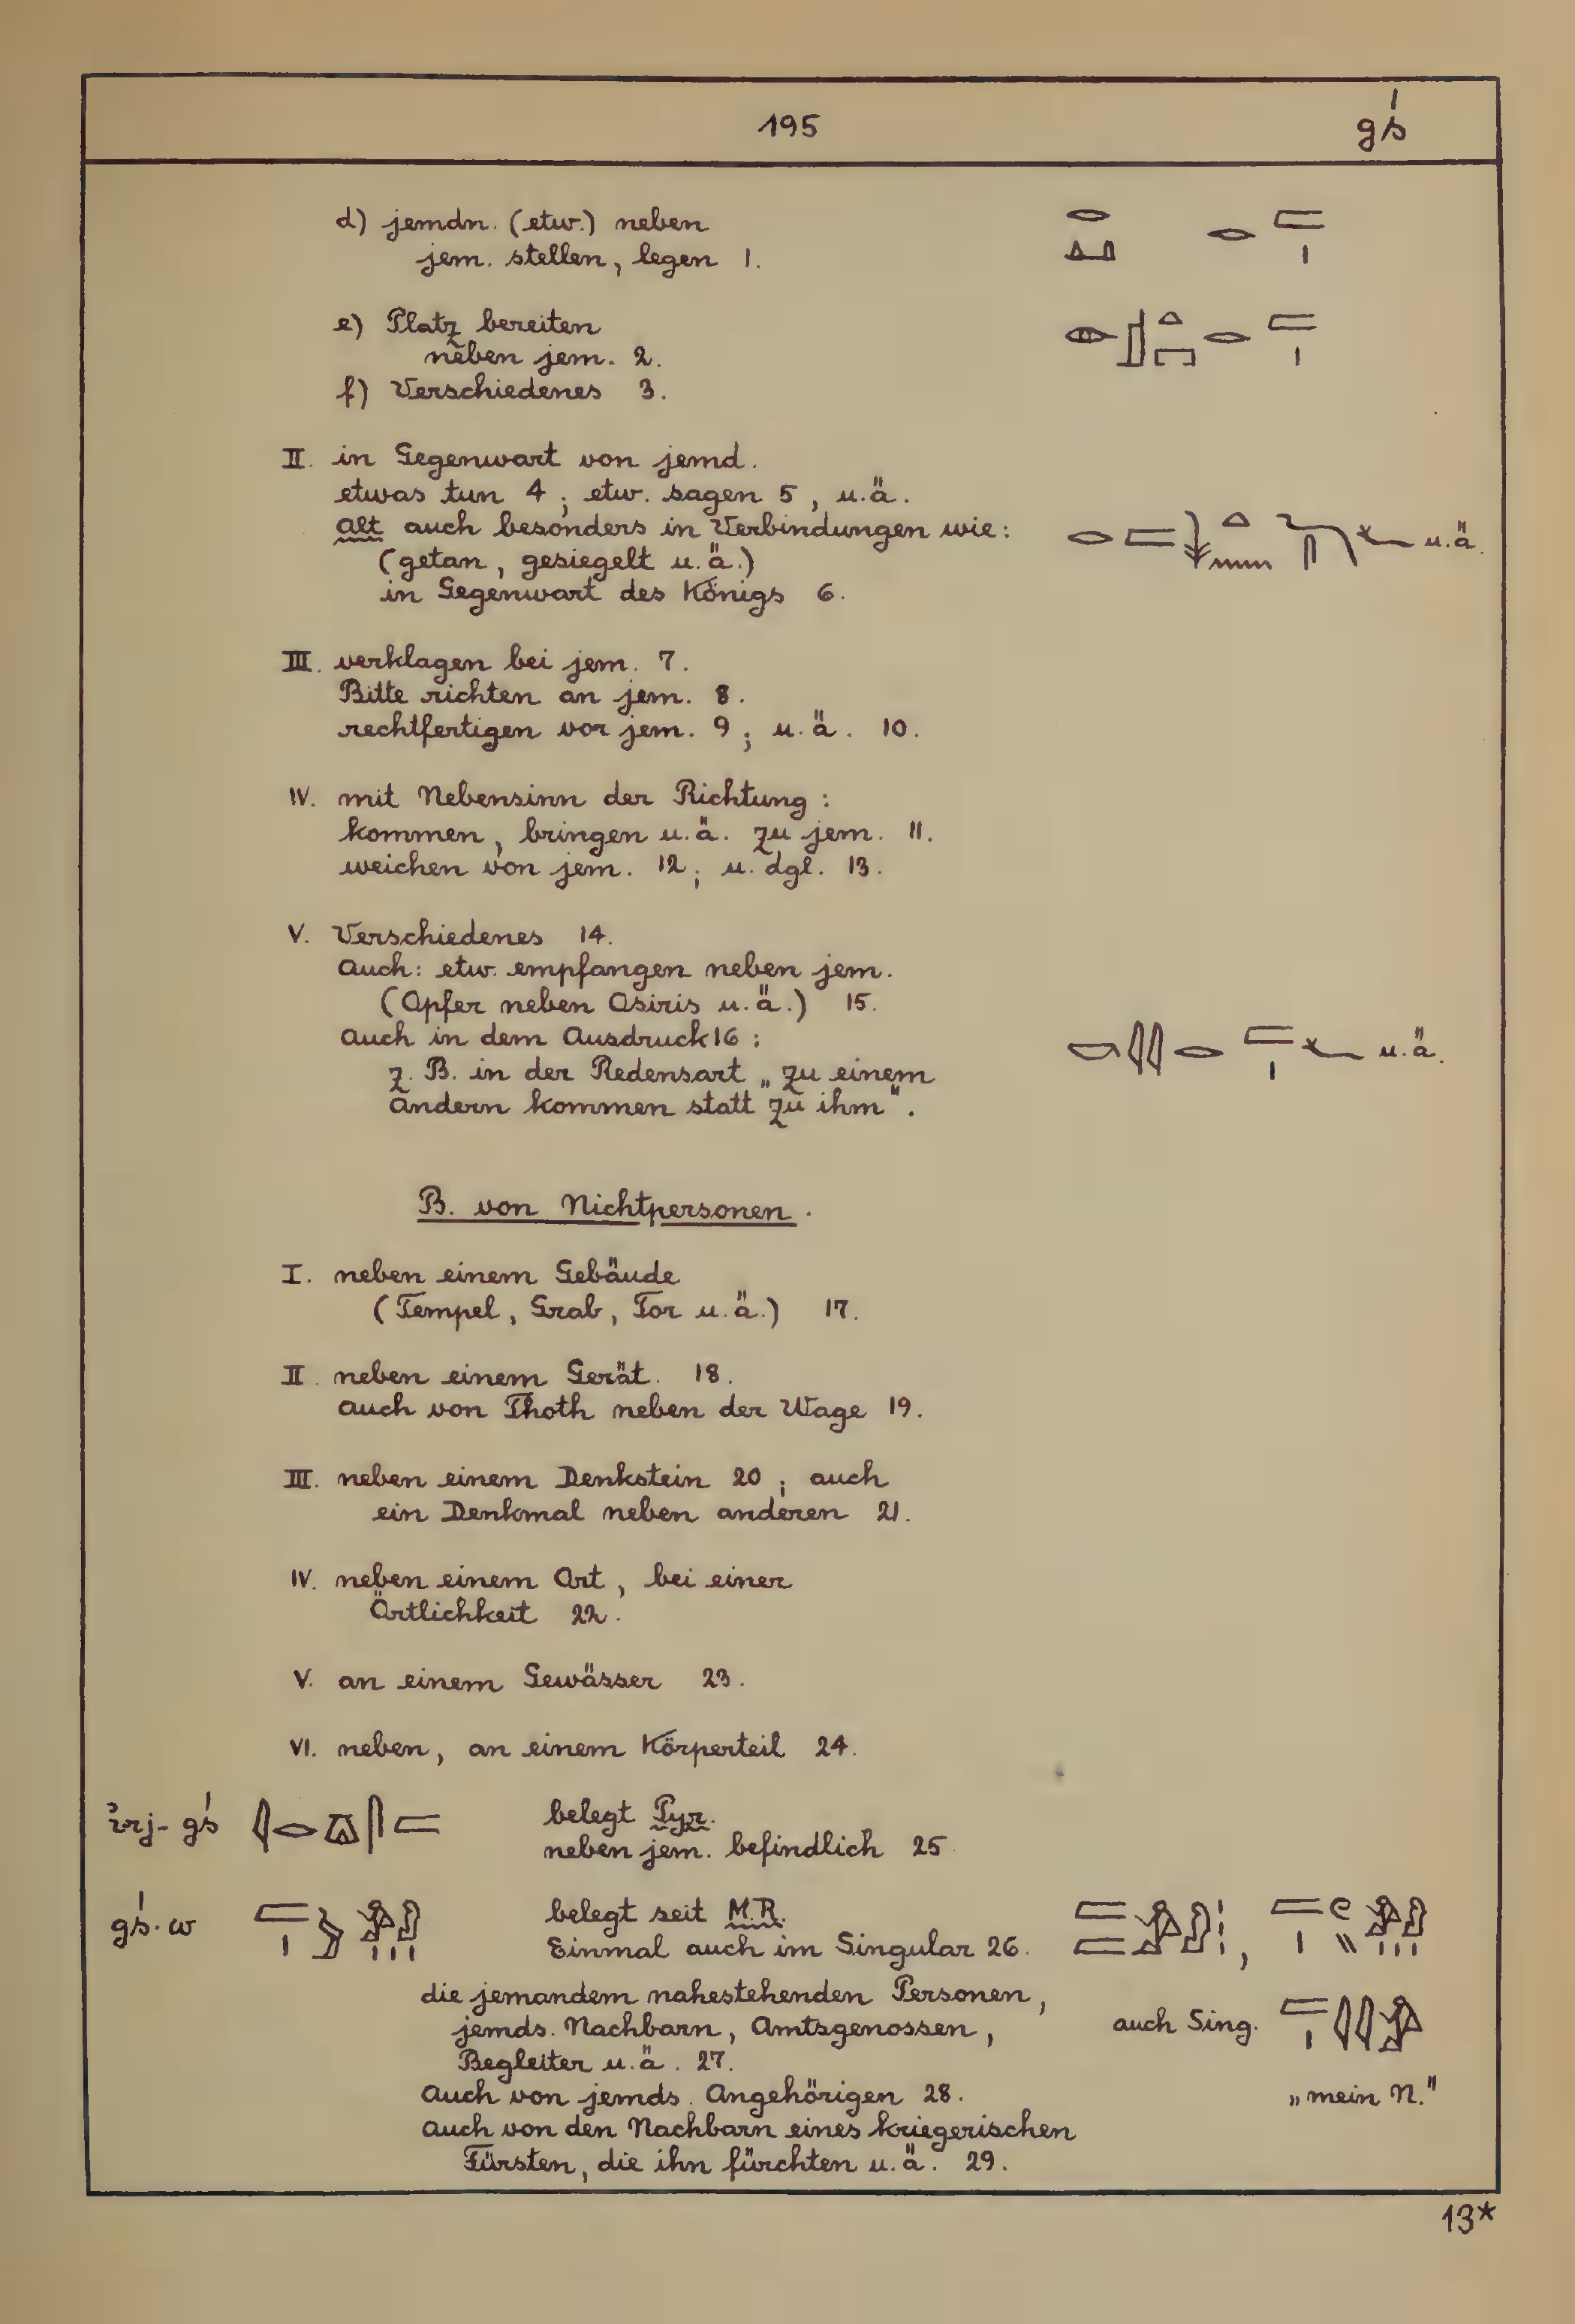 195
gś
d) jemdn. (etw.) neben
jem. stellen, legen 1.
e) Platz bereiten
neben jem. 2.
f) Verschiedenes 3.
II. in Gegenwart von jemd.
etwas tun 4; etw. sagen 5, u.ä.
alt auch besonders in Verbindungen wie: u.ä.
(getan, gesiegelt u.ä.)
in Gegenwart des Königs 6.
III. verklagen bei jem. 7.
Bitte richten an jem. 8.
rechtfertigen vor jem. 9; u.ä. 10.
IV. mit Nebensinn der Richtung:
kommen, bringen u.ä. zu jem. 11.
weichen von jem. 12; u. dgl. 13.
V. Verschiedenes 14.
Auch: etw. empfangen neben jem.
(Opfer neben Osiris u.ä.) 15.
Auch in dem Ausdruck 16: u.ä.
z. B. in der Redensart „zu einem
andern kommen statt zu ihm".
B. von Nichtpersonen.
I. neben einem Gebäude
(Tempel, Grab, Tor u.ä.) 17.
II. neben einem Gerät. 18.
auch von Thoth neben der Wage 19.
III. neben einem Denkstein 20; auch
ein Denkmal neben anderen 21.
IV. neben einem Ort, bei einer
Örtlichkeit 22.
V. an einem Gewässer 23.
VI. neben, an einem Körperteil 24.
ı͗rj-gś belegt Pyr.
neben jem. befindlich 25
gś.w belegt seit M.R.
Einmal auch im Singular 26.
die jemandem nahestehenden Personen,
jemds. Nachbarn, Amtsgenossen, auch Sing.
Begleiter u.ä. 27.
Auch von jemds. Angehörigen 28. „mein N."
auch von den Nachbarn eines kriegerischen
Fürsten, die ihn fürchten u.ä. 29.
13*